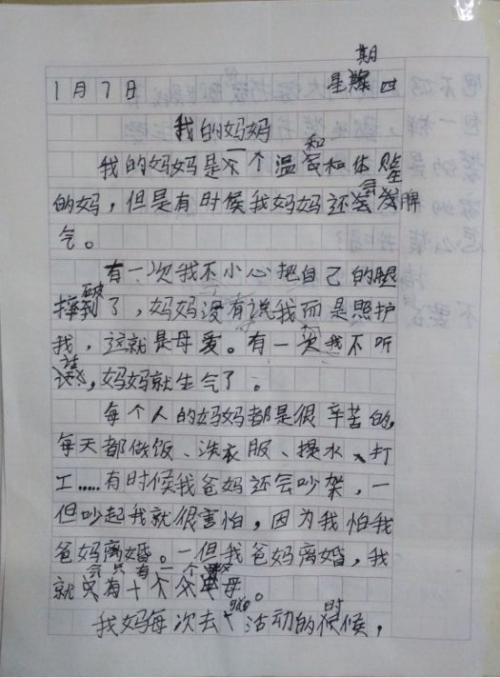 1月7日 星期四
我的妈妈
我的妈妈是一个温和和体贴
的妈,但是有时候我妈妈还会发脾
气。
有一次我不小心把自己的腿
摔破了,妈妈没有说我而是照护
我,这就是母爱。有一次我不听
话,妈妈就生气了。
每个人的妈妈都是很辛苦的,
每天都做饭、洗衣服、提水、打
工……有时候我爸妈还会吵架,一
但吵起我就很害怕,因为我怕我
爸妈离婚。一但我爸妈离婚,我
就会只有一个父母。
我妈每次去活动的时候,